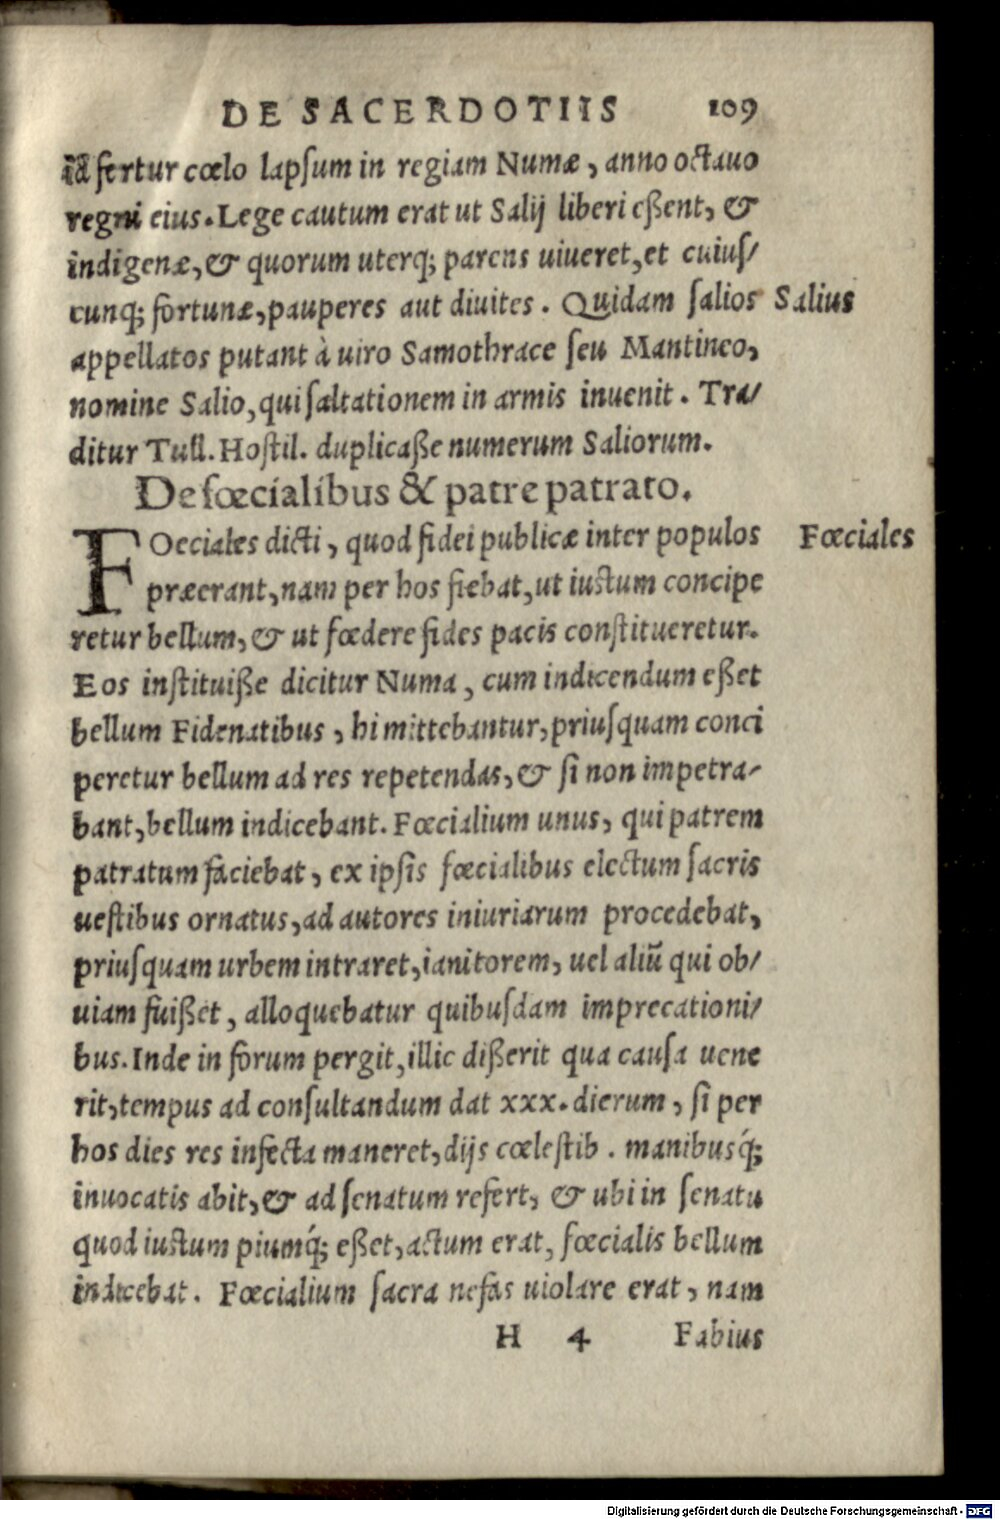 DE SACERDOTIIS 109
id fertur cœlo lapſum in regiam Numæ, anno octauo
regni eius. Lege cautum erat ut Salij liberi eßent, &
indigenæ, & quorum uterq; parens uiueret, et cuiuſ/
cunq; fortunæ, pauperes aut diuites. Quidam ſalios Salius
appellatos putant à uiro Samothrace ſeu Mantineo,
nomine Salio, qui ſaltationem in armis inuenit. Tra/
ditur Tull. Hoſtil. duplicaße numerum Saliorum.
De fœcialibus & patre patrato.
FOeciales dicti, quod fidei publicæ inter populos Fœciales
præerant, nam per hos fiebat, ut iustum concipe
retur bellum, & ut fœdere fides pacis conſtitueretur.
Eos inſtituiße dicitur Numa, cum indicendum eßet
bellum Fidenatibus, hi mittebantur, priuſquam conci
peretur bellum ad res repetendas, & ſi non impetra-
bant, bellum indicebant. Fœcialium unus, qui patrem
patratum faciebat, ex ipſis fœcialibus electum ſacris
ueſtibus ornatus, ad autores iniuriarum procedebat,
priuſquam urbem intraret, ianitorem, uel aliū qui ob/
uiam fuißet, alloquebatur quibuſdam imprecationi/
bus. Inde in forum pergit, illic dißerit qua cauſa uene
rit, tempus ad conſultandum dat xxx. dierum, ſi per
hos dies res infecta maneret, dijs cœleſtib. manibusq́;
inuocatis abit, & ad ſenatum refert, & ubi in ſenatu
quod iustum piumq́; eßet, actum erat, fœcialis bellum
indicebat. Fœcialium ſacra nefas uiolare erat, nam
H 4 Fabius
Digitalisierung gefördert durch die Deutsche Forschungsgemeinschaft - DFG